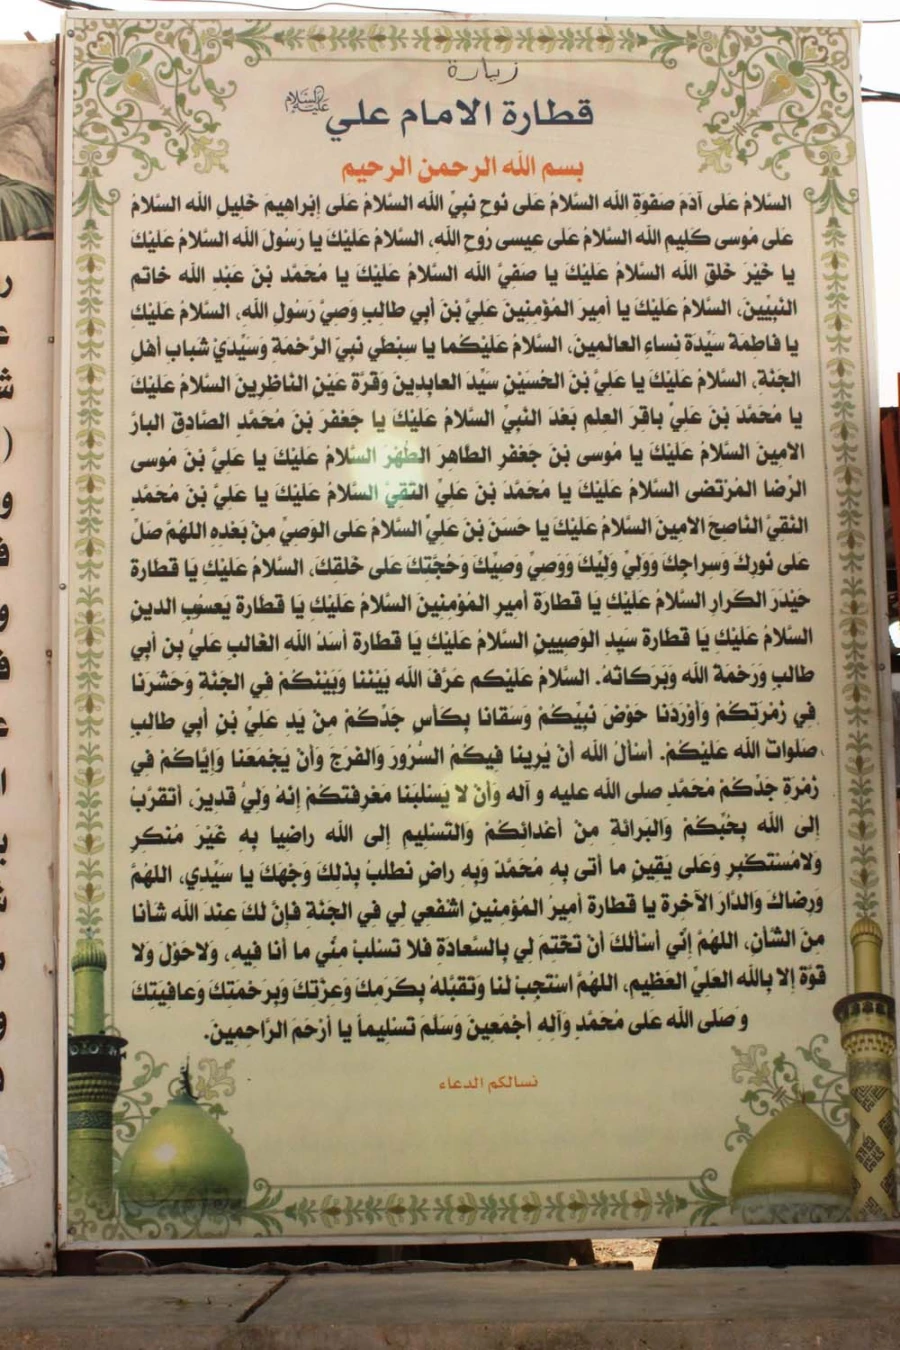 زيارة
قطارة الامام علي عليه السلام
بسم الله الرحمن الرحيم
السَّلامُ عَلى آدَمَ صَفوَةِ الله السَّلامُ عَلى نُوحٍ نَبِيِّ الله السَّلامُ عَلى إبْراهِيمَ خَليلِ الله السَّلامُ
عَلى مُوسى كَليمِ الله السَّلامُ عَلى عِيسى رُوحِ اللهِ، السَّلامُ عَلَيْكَ يا رَسُولَ الله السَّلامُ عَلَيْكَ
يا خَيْرَ خَلقِ الله السَّلامُ عَلَيْكَ يا صَفيَّ الله السَّلامُ عَلَيْكَ يا مُحَمَّد بْنَ عَبْدِ الله خاتَم
النَبِيّينَ، السَّلامُ عَلَيْكَ يا أميرَ المُؤمِنينَ عَليَّ بْنَ أبي طالِبٍ وَصِيَّ رَسُولِ اللهِ، السَّلامُ عَلَيْكِ
يا فاطِمَة سَيِّدَة نِساءِ العالَمينَ، السَّلامُ عَلَيْكُما يا سِبْطي نَبيِّ الرَّحْمَةِ وَسَيِّديْ شَبابِ أهْلِ
الجَنةِ، السَّلامُ عَلَيْكَ يا عَليَّ بْنَ الحُسَيْنِ سَيِّدَ العابِدِينَ وَقرَّةَ عَيْنِ الناظِرِينَ السَّلامُ عَلَيْكَ
يا مُحَمَّدَ بْنَ عَليٍّ باقِرَ العلمِ بَعْدَ النبيِّ السَّلامُ عَلَيْكَ يا جَعْفَرَ بْنَ مُحَمَّدٍ الصّادِق البارَّ
الامِينَ السَّلامُ عَلَيْكَ يا مُوسى بْنَ جَعْفَرٍ الطّاهِرَ الطُهْرَ السَّلامُ عَلَيْكَ يا عَليَّ بْنَ مُوسى
الرِّضا المُرْتَضى السَّلامُ عَلَيْكَ يا مُحَمَّدَ بْنَ عَليٍّ التَقِيَّ السَّلامُ عَلَيْكَ يا عَليَّ بْنَ مُحَمَّدٍ
النَقيَّ النّاصِحَ الامينَ السَّلامُ عَلَيْكَ يا حَسَنَ بْنَ عَليٍّ السَّلامُ عَلى الوَصيِّ مِنْ بَعْدِهِ اللهُمَّ صَلِّ
عَلى نُورِكَ وَسِراجِكَ وَوَليِّ وَليِّكَ وَوَصيِّ وَصيِّكَ وَحُجَّتِكَ عَلى خَلقِكَ، السَّلامُ عَلَيْكِ يا قطارة
حَيْدَرَ الكَرارِ السَّلامُ عَلَيْكِ يَا قطارَة أمِيرِ المُؤمِنينَ السَّلامُ عَلَيْكِ يَا قطارة يَعسُوبِ الدينِ
السَّلامُ عَلَيْكِ يَا قطارة سَيدِ الوَصِيينِ السَّلامُ عَلَيْكِ يَا قطارة أسَدُ اللهِ الغالبِ عَليُّ بِن أبي
طالبٍ وَرَحْمَة الله وَبَرَكاتُهُ. السَّلامُ عَلَيْكُم عَرَّفَ الله بَيْنَنا وَبَيْنَكُمْ في الجَنةِ وَحَشَرَنا
في زُمْرَتِكُمْ وَأوْرَدَنا حَوْضَ نَبيِّكُمْ وَسَقانا بِكَأسِ جَدِّكُمْ مِنْ يَدِ عَليِّ بْنِ أبي طالِبٍ
صَلواتُ الله عَلَيْكُمْ. أسْألُ الله أنْ يُرِينا فيكُمُ السُرُورَ وَالفَرَجَ وَأنْ يَجْمَعَنا وَإيّاكُمْ في
زُمْرَةِ جَدِّكُمْ مُحَمَّدٍ صلى الله عليه و آله وَأنْ لا يَسْلبَنا مَعْرِفَتَكُمْ إنهُ وَليٌّ قَديرٌ، أتَقَرَّبُ
إلى الله بِحُبِّكُمْ وَالبَرائَةِ مِنْ أعْدائِكُمْ وَالتَسْليمِ إلى الله راضِيا بِهِ غَيْرَ مُنكِرٍ
وَلامُسْتَكْبِرٍ وَعَلى يَقينِ ما أتى بِهِ مُحَمَّدٌ وَبِهِ راضٍ نَطلُبُ بِذلِكَ وَجْهَكَ يا سَيِّدي، اللهُمَّ
وَرِضاكَ وَالدّارَ الآخِرةِ يا قطارة أميرُ المُؤمِنينِ اشفعي لي في الجَنةِ فإنَّ لكَ عِندَ الله شَأنا
مِنَ الشَأنِ، اللهُمَّ إنّي أسْألُكَ أنْ تَخْتِمَ لي بِالسَّعادَةِ فلا تَسْلُبْ مِنّي ما أنا فيهِ، وَلاحَوْلَ وَلا
قوَّة إلا بِالله العَليِّ العَظيمِ، اللهُمَّ اسْتَجِبْ لنا وَتَقبَّلهُ بِكَرَمِكَ وَعِزَّتِكَ وَبِرَحْمَتِكَ وَعافيَتِكَ
وَ صَلى الله عَلى مُحَمَّدٍ وَآلِهِ أجْمَعينَ وَسَلَّمَ تَسْليماً يا أرْحَمَ الرَّاحِمينَ.
نسالكم الدعاء